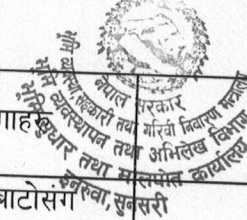 नेपाल सरकार
भूमि व्यवस्था, सहकारी तथा गरिवी निवारण मन्त्रालय
भूमि व्यवस्थापन तथा अभिलेख विभाग
भूमिसुधार तथा मालपोत कार्यालय
इनरुवा, सुनसरी
गाहरु
बाटोसंग